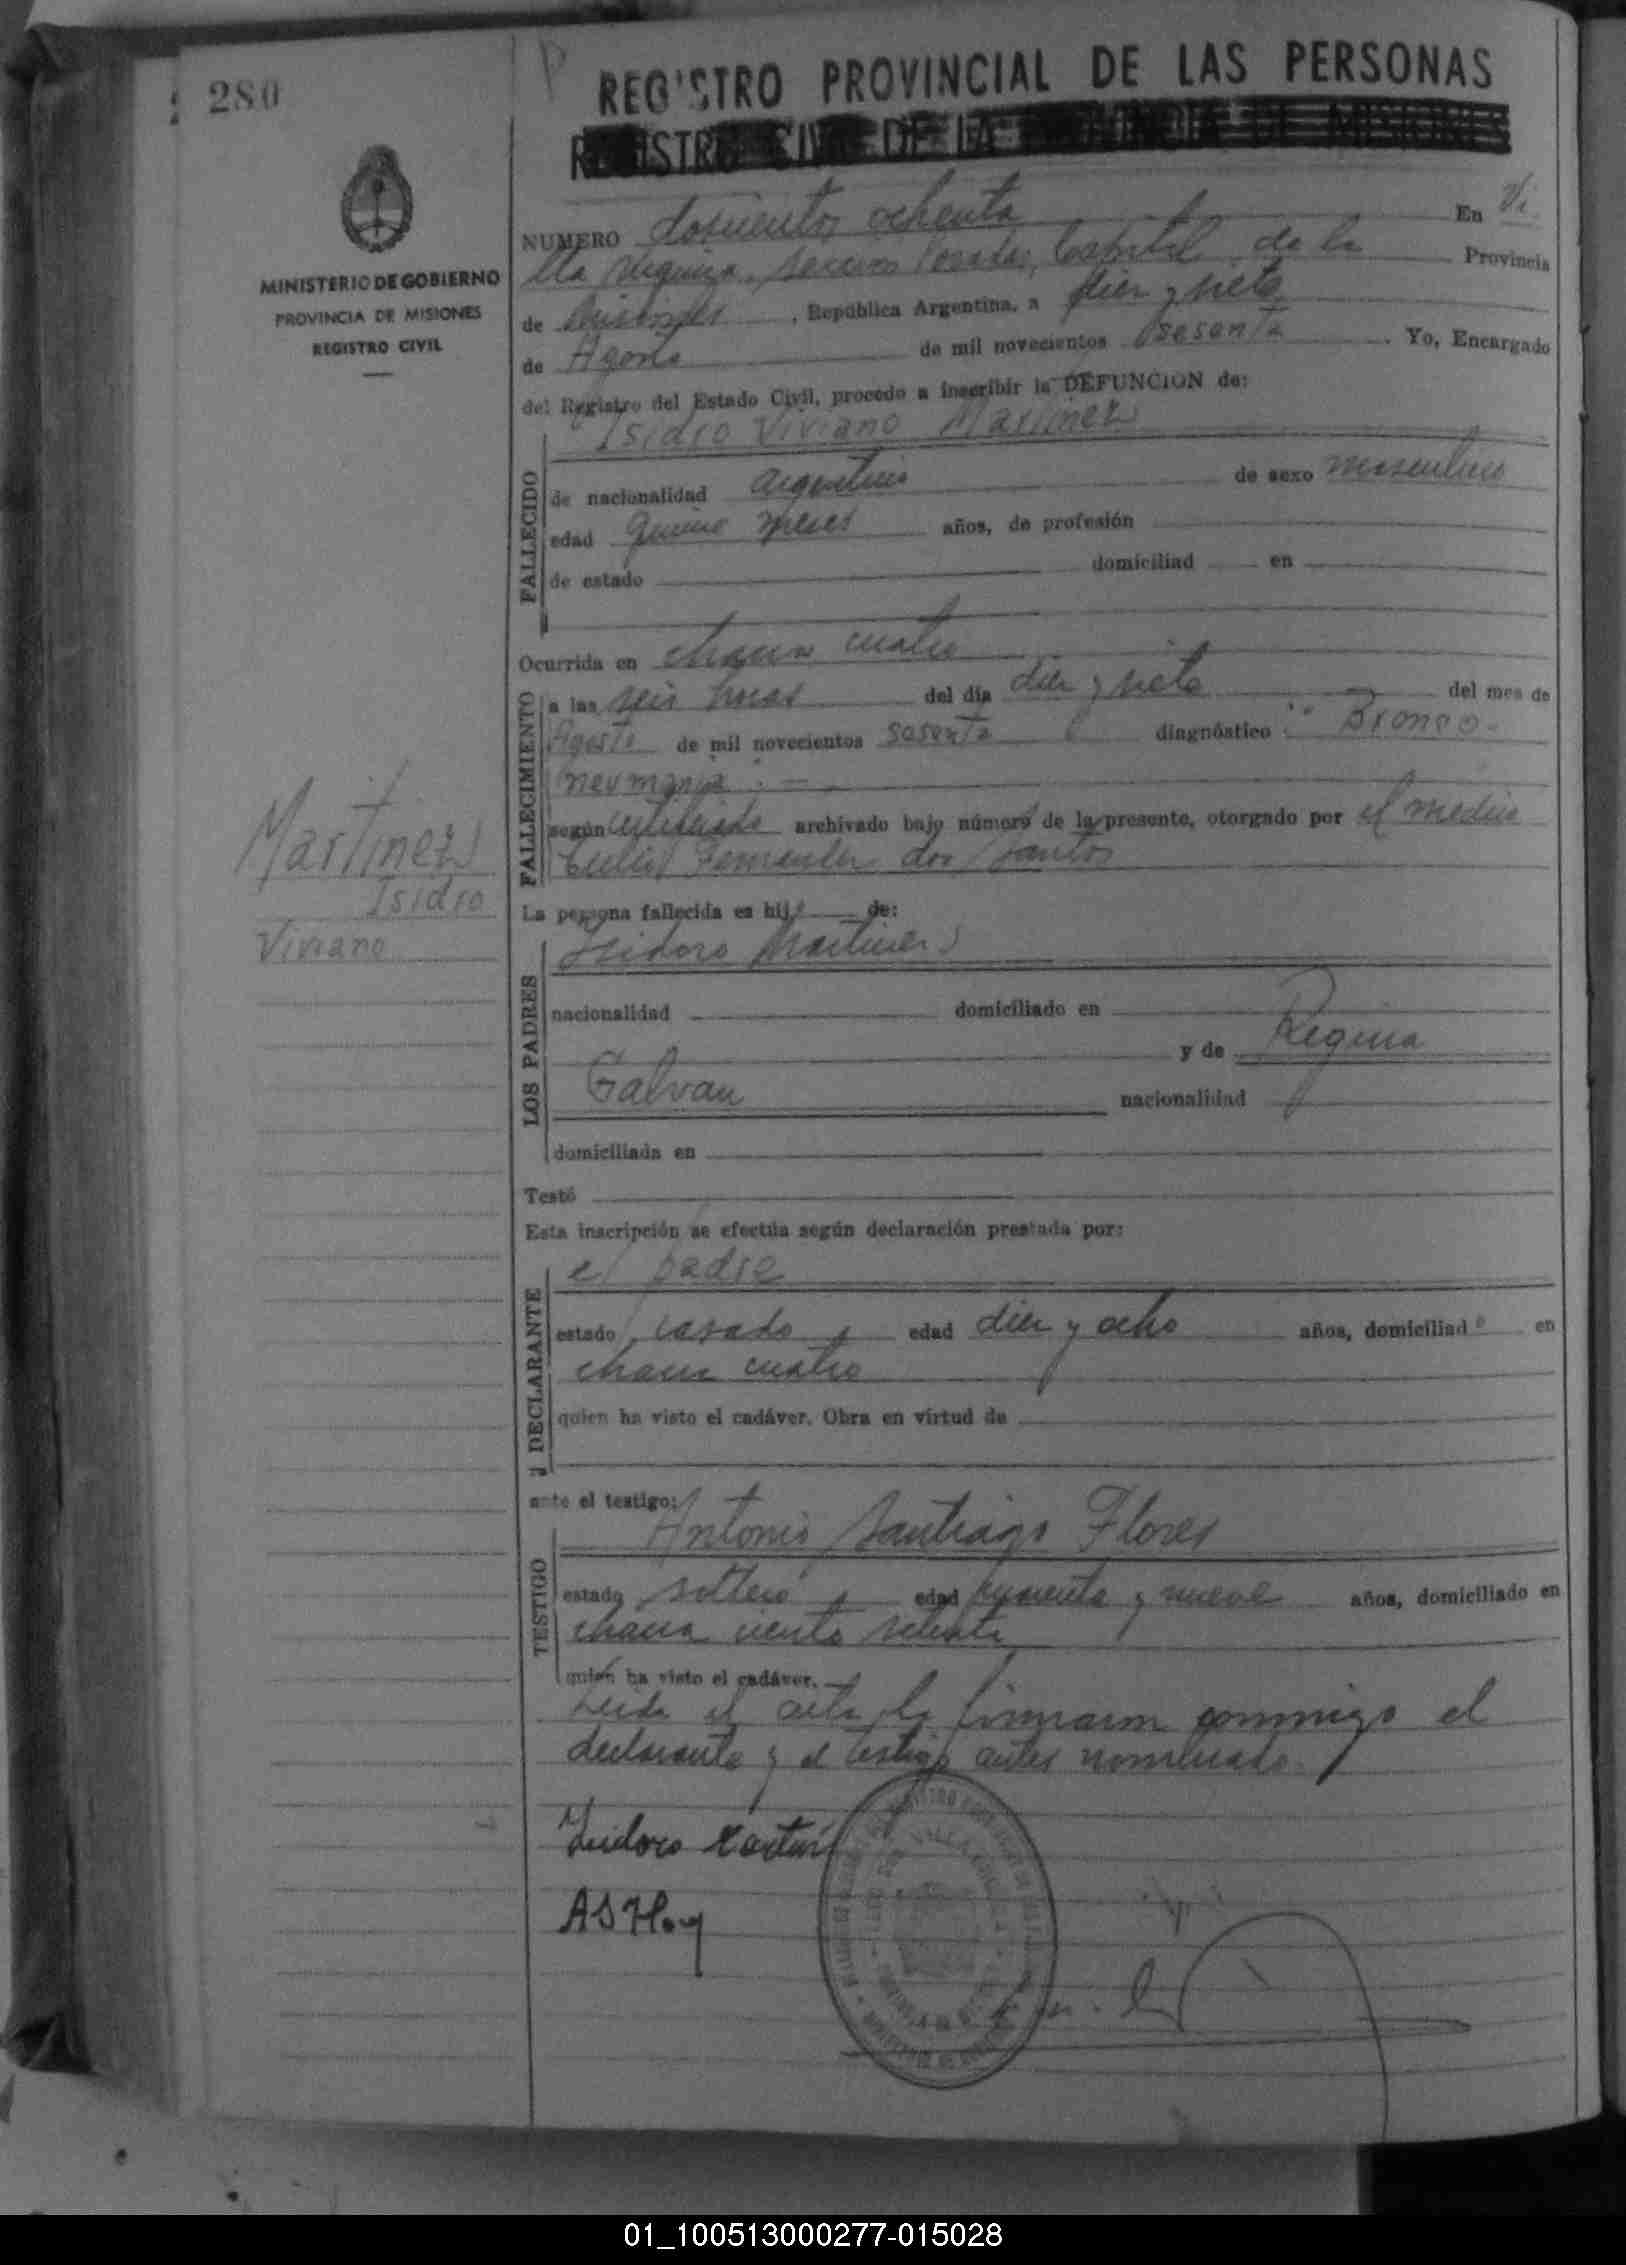 280
REGISTRO PROVINCIAL DE LAS PERSONAS
REGISTRO CIVIL DE LA PROVINCIA DE MISIONES
MINISTERIO DE GOBIERNO
PROVINCIA DE MISIONES
REGISTRO CIVIL
NUMERO doscientos ochenta En Vi
lla Urquiza, Posadas, Capital de la Provincia
de Misiones, República Argentina, a diez y siete
de Agosto de mil novecientos sesenta. Yo, Encargado
del Registro del Estado Civil, procedo a inscribir la DEFUNCION de:
Isidro Viviano Martinez
FALLECIDO
de nacionalidad argentino de sexo masculino
edad quince meses años, de profesión
de estado domiciliad en
Ocurrida en chacra cuatro
FALLECIMIENTO
a las seis horas del día diez y siete del mes de
Agosto de mil novecientos sesenta diagnóstico "Bronco-
neumonia".-
según certificado archivado bajo número de la presente, otorgado por el medico
Fernandez dos Santos
Martinez
Isidro
Viviano
La persona fallecida es hijo de:
LOS PADRES
Isidoro Martinez
nacionalidad domiciliado en
y de Regina
Galvan nacionalidad
domiciliada en
Testó
Esta inscripción se efectúa según declaración prestada por:
DECLARANTE
el padre
estado casado edad diez y ocho años, domiciliado en
chacra cuatro
quien ha visto el cadáver. Obra en virtud de
ante el testigo:
TESTIGO
Antonio Santiago Flores
estado soltero edad cuarenta y nueve años, domiciliado en
chacra ciento setenta
quien ha visto el cadáver.
Leida el acta la firmaron conmigo el
declarante y el testigo antes nombrado.
Isidoro
01_100513000277-015028